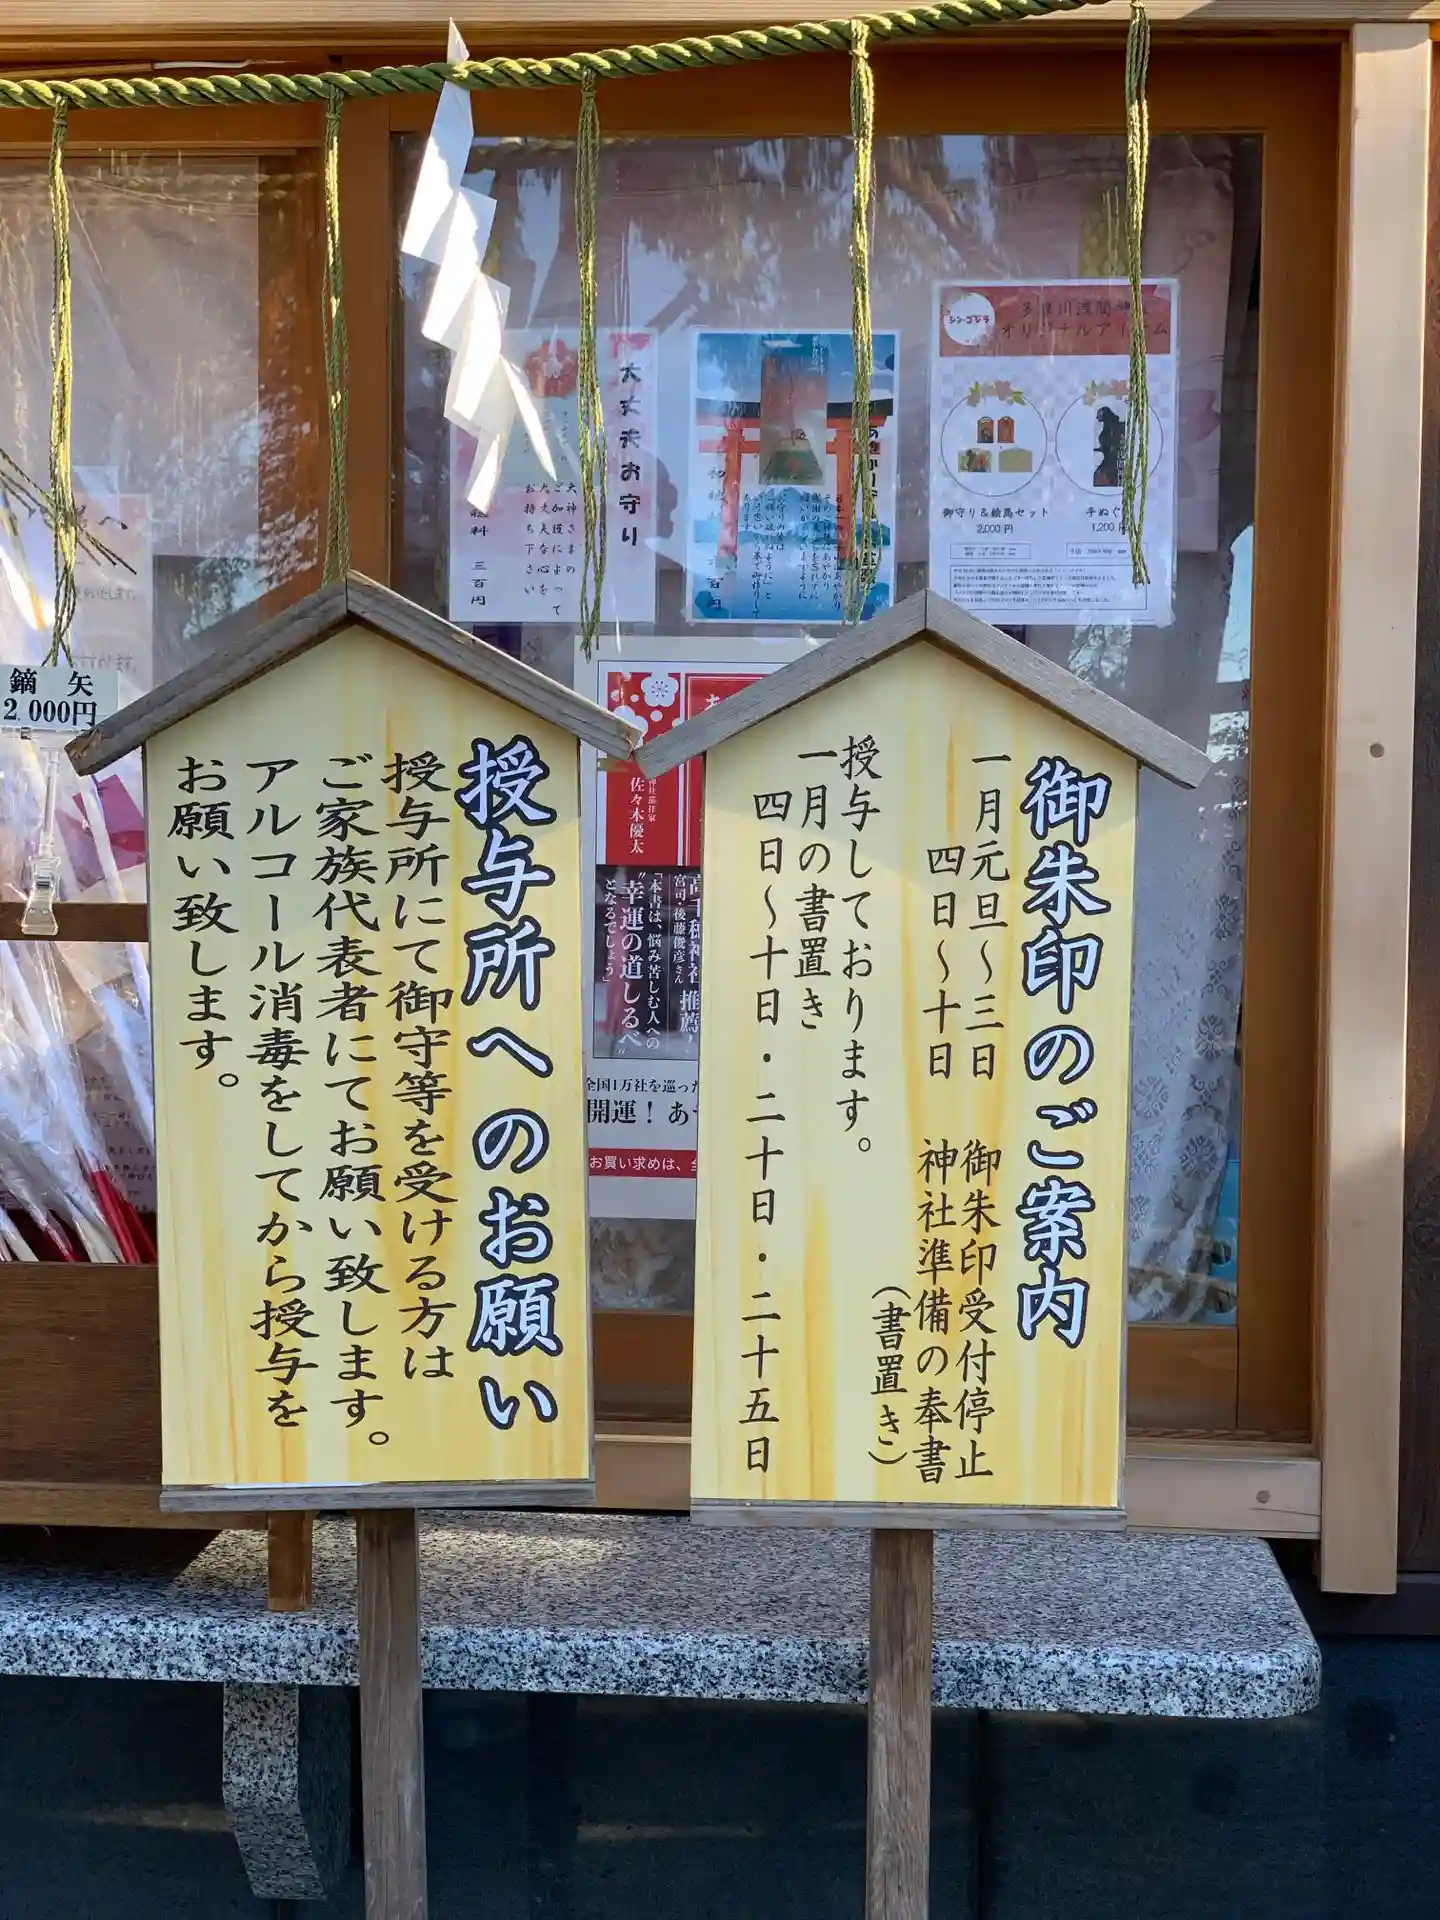 御朱印のご案内
一月元旦～三日　御朱印受付停止
四日～十日　神社準備の奉書
（書置き）
授与しております。
一月の書置き
四日～十日・二十日・二十五日
授与所へのお願い
授与所にて御守等を受ける方は
ご家族代表者にてお願い致します。
アルコール消毒をしてから授与を
お願い致します。
鏑矢
2,000円
大丈夫お守り
大神さまの
ご加護によって
大丈夫な心を
お持ち下さい
三百円
シン・ゴジラ
多摩川浅間神社
オリジナルアイテム
御守り＆絵馬セット
2,000円
手ぬぐ
1,200円
佐々木優太
高千穂神社
宮司・後藤俊彦さん
推薦！
「本書は、悩み苦しむ人への
“幸運の道しるべ”
となるでしょう」
全国1万社を巡った
開運！あ
お買い求めは、